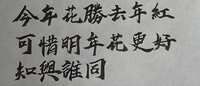 今年花勝去年紅
可惜明年花更好
知與誰同